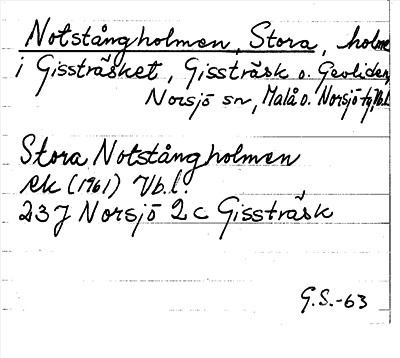 Notstångholmen, Stora, holme
i Gissträsket, Gissträsk o. Gevliden,
Norsjö sn, Malå o. Norsjö tg, Vb.l.
Stora Notstångholmen
ek (1961) Vb.l.
23J Norsjö 2c Gissträsk
G.S.-63